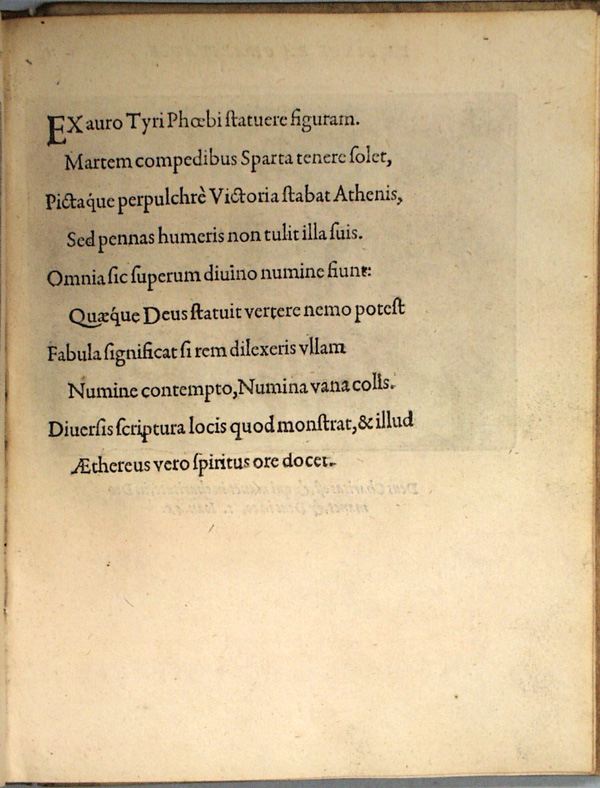 EX auro Tyri Phœbi ſtatuere figuram.
Martem compedibus Sparta tenere ſolet,
Pictaq́ue perpulchrè Victoria ſtabat Athenis,
Sed pennas humeris non tulit illa ſuis.
Omnia ſic ſuperum diuino numine fiunt:
Quæq́ue Deus ſtatuit vertere nemo poteſt
Fabula ſignificat ſi rem dilexeris vllam
Numine contempto, Numina vana colis.
Diuerſis ſcriptura locis quod monſtrat, & illud
Æthereus vero ſpiritus ore docet.